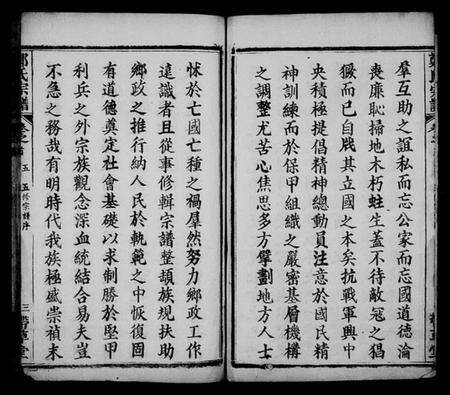 羣互助之誼私而忘公家而忘國道德淪
喪廉恥掃地木朽蛀生蓋不待敵寇之猖
獗而已自戕其立國之本矣抗戰軍興中
央積極提倡精神總動員注意於國民精
神訓練而於保甲組織之嚴密基層機構
之調整尤苦心焦思多方擘劃地方人士
怵於亡國亡種之禍羣然努力鄉政工作
遠識者且從事修輯宗譜整頓族規扶助
鄉政之推行納人民於軌範之中恢復固
有道德奠定社會基礎以求制勝於堅甲
利兵之外宗族觀念深血統結合易夫豈
不急之務哉有明時代我族極盛崇禎末
鄭氏宗譜
卷之首
五
五修宗譜序
三